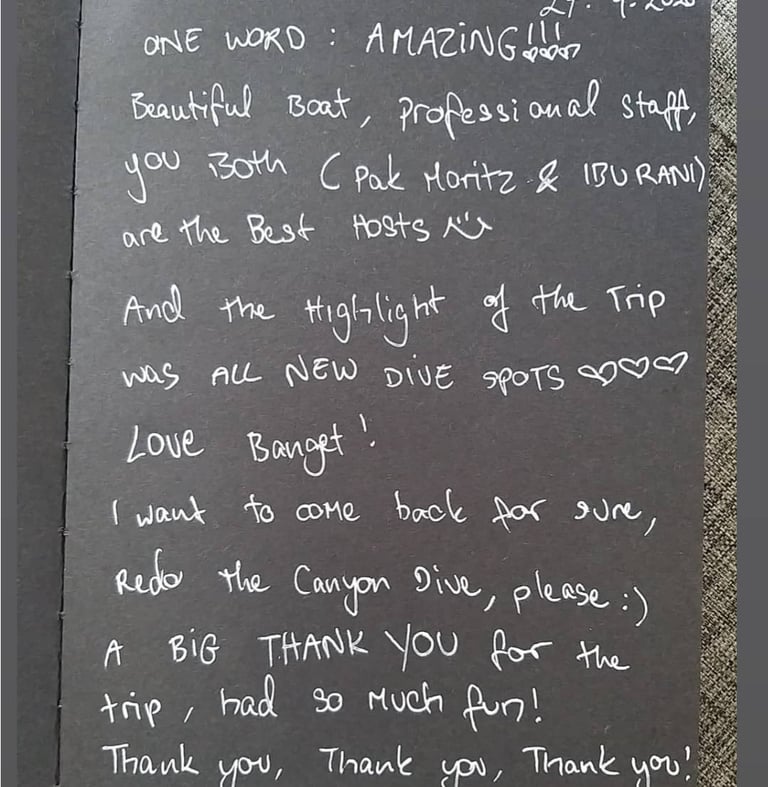 ONE WORD : AMAZING!!! ♡♡♡♡
Beautiful Boat, professional staff,
you Both (Pak Moritz & IBU RANI)
are the Best Hosts
And the Highlight of the Trip
was ALL NEW DIVE SPOTS ♡♡♡
Love Banget!
I want to come back for sure,
Redo the Canyon Dive, please :)
A BIG THANK YOU for the
trip, had so much fun!
Thank you, Thank you, Thank you!